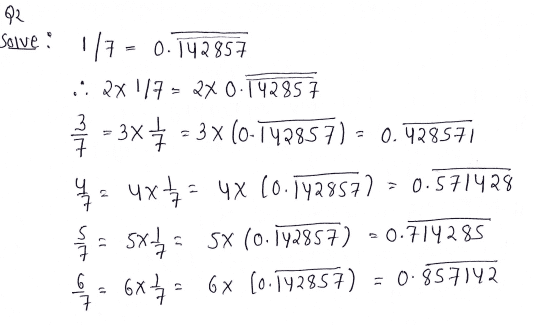 Q2
Solve : 1/7 = 0.\overline{142857}
∴ 2x 1/7 = 2x 0.\overline{142857}
3/7 = 3x 1/7 = 3x (0.\overline{142857}) = 0.\overline{428571}
4/7 = 4x 1/7 = 4x (0.\overline{142857}) = 0.\overline{571428}
5/7 = 5x 1/7 = 5x (0.\overline{142857}) = 0.\overline{714285}
6/7 = 6x 1/7 = 6x (0.\overline{142857}) = 0.\overline{857142}